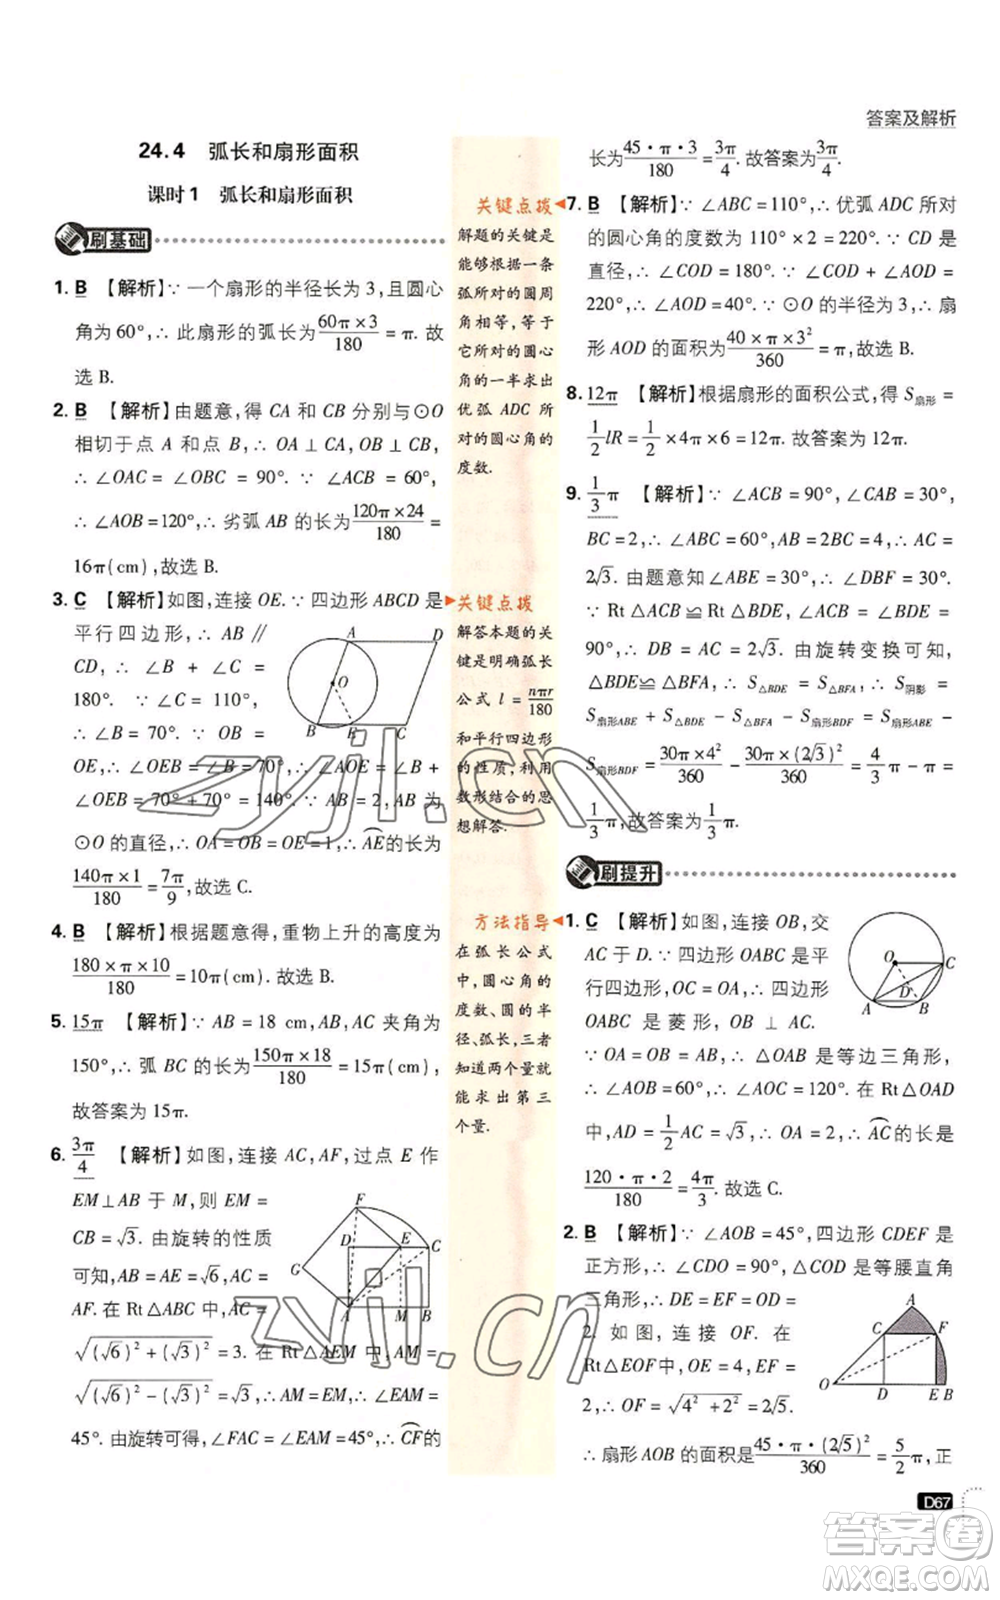 答案及解析
24.4 弧长和扇形面积
课时1 弧长和扇形面积
刷基础
1. B 【解析】∵ 一个扇形的半径长为 3,且圆心
角为60°,∴ 此扇形的弧长为60π×3/180=π. 故
选 B.
2. B 【解析】由题意,得 CA 和 CB 分别与⊙O
相切于点 A 和点 B,∴ OA⊥CA,OB⊥CB,
∴ ∠OAC = ∠OBC = 90°. ∵ ∠ACB = 60°,
∴ ∠AOB=120°,∴ 劣弧 AB 的长为120π×24/180=
16π(cm),故选 B.
3. C 【解析】如图,连接 OE. ∵ 四边形 ABCD 是
平行四边形,∴ AB∥
CD,∴ ∠B + ∠C =
180°. ∵ ∠C = 110°,
∴ ∠B = 70°. ∵ OB =
OE,∴ ∠B = ∠OEB = 70°,∴ ∠AOE = ∠B +
∠OEB = 70°+70° = 140°. ∵ AB = 2,AB是
⊙O 的直径,∴ OA=OB=OE=1,∴ AE的长为
140π×1/180=7π/9,故选 C.
A
D
O
B
E
C
4. B 【解析】根据题意得,重物上升的高度为
180×π×10/180=10π(cm). 故选 B.
5. 15π 【解析】∵ AB=18 cm,AB,AC 夹角为
150°,∴ 弧 BC 的长为150π×18/180=15π(cm).
故答案为 15π.
6. 3π/4 【解析】如图,连接 AC,AF,过点 E 作
EM⊥AB 于 M,则 EM =
CB=√3. 由旋转的性质
可知,AB = AE = √6,AC =
AF. 在 Rt△ABC 中,AC =
√((√6)²+(√3)²) = 3. 在 Rt△AEM 中,AM =
√((√6)²-(√3)²) =√3,∴ AM=EM,∴ ∠EAM=
45°. 由旋转可得,∠FAC=∠EAM=45°,∴ CF的
F
D
E
C
G
A
M
B
关键点拨
解题的关键是
能够根据一条
弧所对的圆周
角相等,等于
它所对的圆心
角的一半求出
优弧 ADC 所
对的圆心角的
度数.
关键点拨
解答本题的关
键是明确弧长
公式 l = nπr/180
和平行四边形
的性质,利用
数形结合的思
想解答.
方法指导
在弧长公式
中,圆心角的
度数、圆的半
径、弧长,三者
知道两个量就
能求出第三
个量.
长为45·π·3/180=3π/4. 故答案为3π/4.
7. B 【解析】∵ ∠ABC=110°,∴ 优弧 ADC 所对
的圆心角的度数为 110°×2=220°. ∵ CD 是
直径,∴ ∠COD = 180°. ∵ ∠COD + ∠AOD =
220°,∴ ∠AOD=40°. ∵ ⊙O 的半径为 3,∴ 扇
形 AOD 的面积为40×π×3²/360=π,故选 B.
8. 12π 【解析】根据扇形的面积公式,得 S扇形=
1/2 lR=1/2×4π×6=12π. 故答案为 12π.
9. 1/3π 【解析】∵ ∠ACB = 90°,∠CAB = 30°,
BC=2,∴ ∠ABC=60°,AB=2BC=4,∴ AC=
2√3. 由题意知∠ABE = 30°,∴ ∠DBF = 30°.
∵ Rt△ABC≌Rt△BDE,∴ ∠ACB=∠BDE=
90°,∴ DB = AC = 2√3. 由旋转变换可知,
△BDE≌△BFA,∴ S△BDE = S△BFA,∴ S阴影 =
S扇形ABE + S△BDE - S△BFA - S扇形BDF = S扇形ABE -
S扇形BDF=30π×4²/360-30π×(2√3)²/360=4/3π-π=
1/3π,故答案为1/3π.
刷提升
1. C 【解析】如图,连接 OB,交
AC于 D. ∵ 四边形 OABC 是平
行四边形,OC=OA,∴ 四边形
OABC 是菱形,OB ⊥ AC.
∵ OA=OB=AB,∴ △OAB 是等边三角形,
∴ ∠AOB=60°,∴ ∠AOC=120°. 在 Rt△OAD
中,AD=1/2AC=√3,∴ OA=2,∴ AC的长是
120·π·2/180=4π/3. 故选 C.
O
C
D
A
B
2. B 【解析】∵ ∠AOB=45°,四边形 CDEF 是
正方形,∴ ∠CDO=90°,∴ △CDO 是等腰直角
三角形,∴ DE = EF = OD =
2. 如图,连接 OF. 在
Rt△OEF中,OE=4,EF=
2,∴ OF=√(4²+2²)=2√5,
∴ 扇形 AOB 的面积是45·π·(2√5)²/360=5/2π,正
A
C
F
O
D
E
B
D67
答案卷
MXQE.COM
zyjl.cn
zyjl.cn